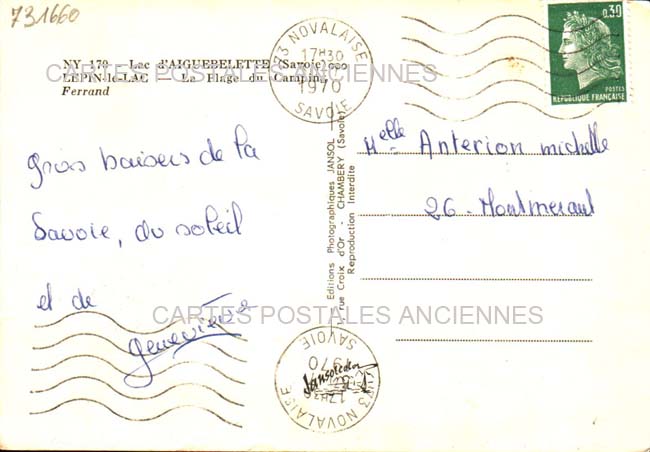 731660
NY 170 - Lac d'AIGUEBELETTE (Savoie)
LÉPIN-le-LAC — La Plage du Camping
Ferrand
73 NOVALAISE
17H30
1970
SAVOIE
0,30
POSTES
REPUBLIQUE FRANÇAISE
CARTES POSTALES ANCIENNES
Gros baisers de la
Savoie, du soleil
et de
Geneviève
Editions Photographiques JANSOL
rue Croix d'Or - CHAMBERY (Savoie)
Reproduction Interdite
Melle Anterion michelle
26 - Montmeraut
CARTES POSTALES ANCIENNES
Jansolcolor
SAVOIE
1970
17H3
73 NOVALAISE